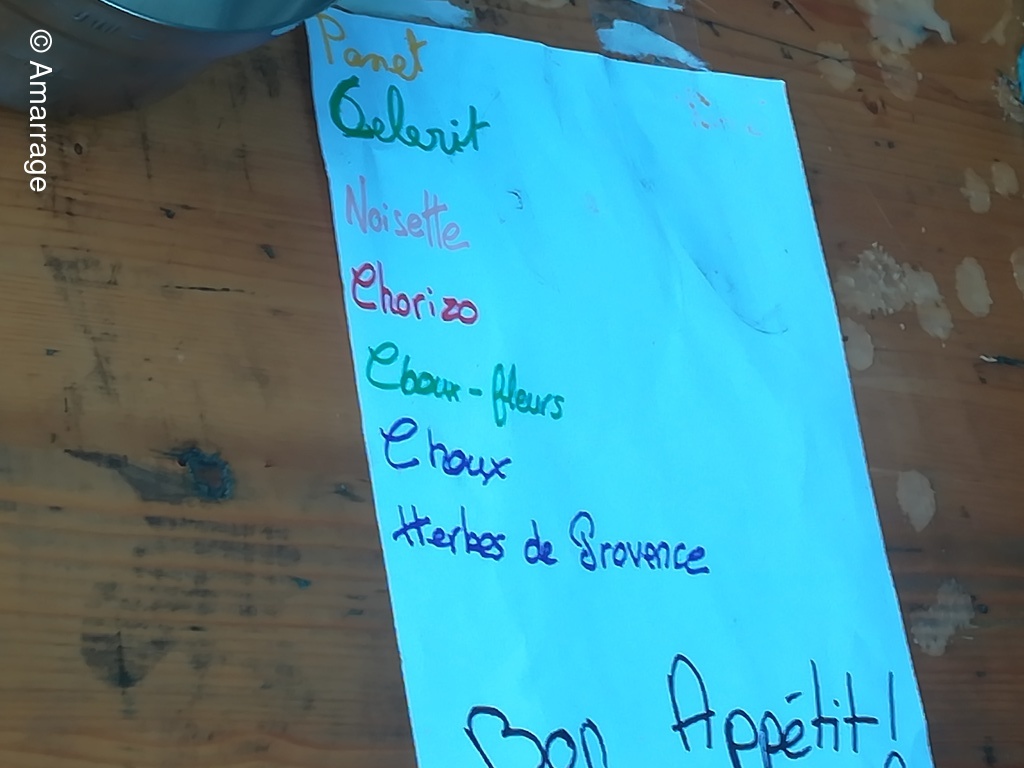 © Amarrage
Panet
Celerit
Noisette
Chorizo
Choux-fleurs
Choux
Herbes de Provence
Bon Appétit!